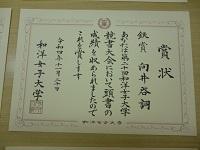 賞状
銀賞 向井谷調
あなたは第二十回和洋女子大学
競書大会において頭書の
成績を収められましたので
これを賞します
令和四年十一月二日
和洋女子大学